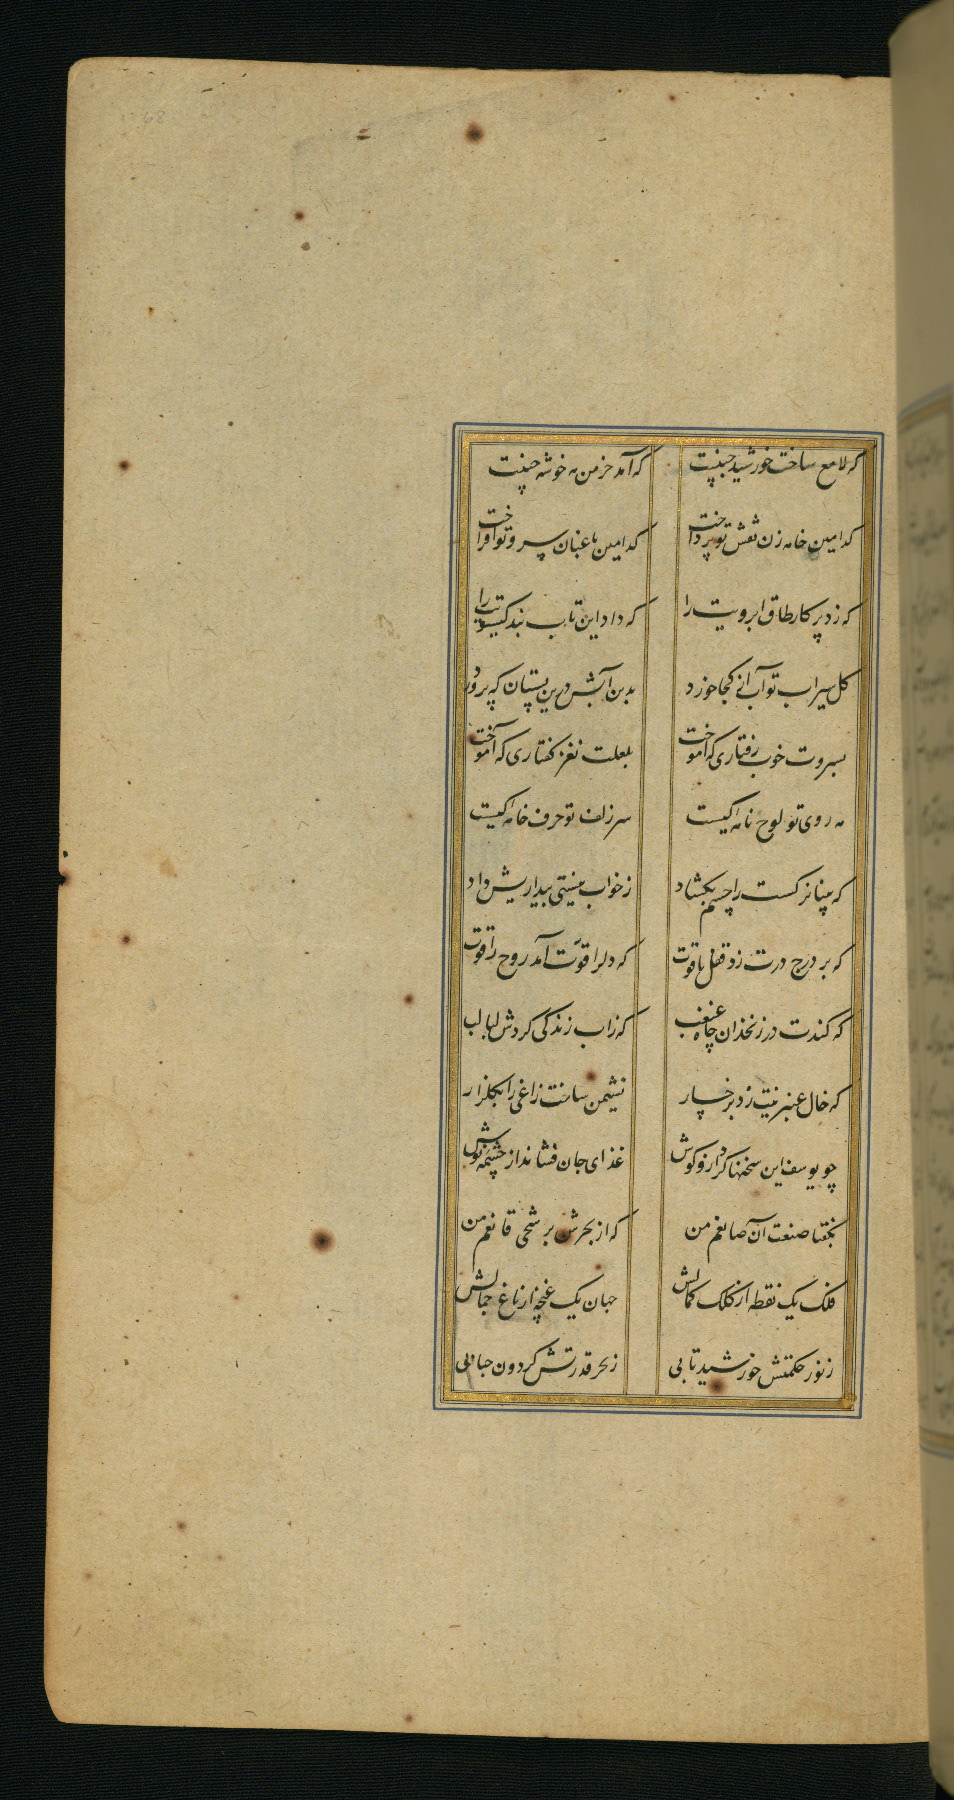 که لامع ساخت خورشید جبینت که آمد خرمن مه خوشه چینت
کدامین خامه زن نقش تو پرداخت کدامین باغبان سرو تو افراخت
که زد پرکار طاق ابرویت را که داد این تاب بند گیسویت را
کل سیراب تو آب از کجا خورد بدین آبش درین بستان که پرورد
بسروت خوب رفتاری که آموخت بلعلت نغز کفتاری که آموخت
مه روی تو لوح نامهٔ کیست سر زلف تو حرف خامهٔ کیست
که بینا نرکست را چشم بکشاد ز خواب نیستی بیداریش داد
که بر درج درت زد قفل یاقوت که دل را قوّت آمد روح را قوت
که کندت در زنخدان چاه غبغب که زاب زندکی کردش لبالب
که خال عنبرینت زد برخسار نشیمن ساخت زاغی را بکلزار
چو یوسف این سخنها کرد ازو کوش غذای جان فشاند از چشمه نوش
بکفتا صنعت آن صانعم من که از بحرش برشحی قانعم من
فلک یک نقطه از کلک کمالش جهان یک غنچه از باغ جمالش
ز نور حکمتش خورشید تابی ز بحر قدرتش کردون حبابی